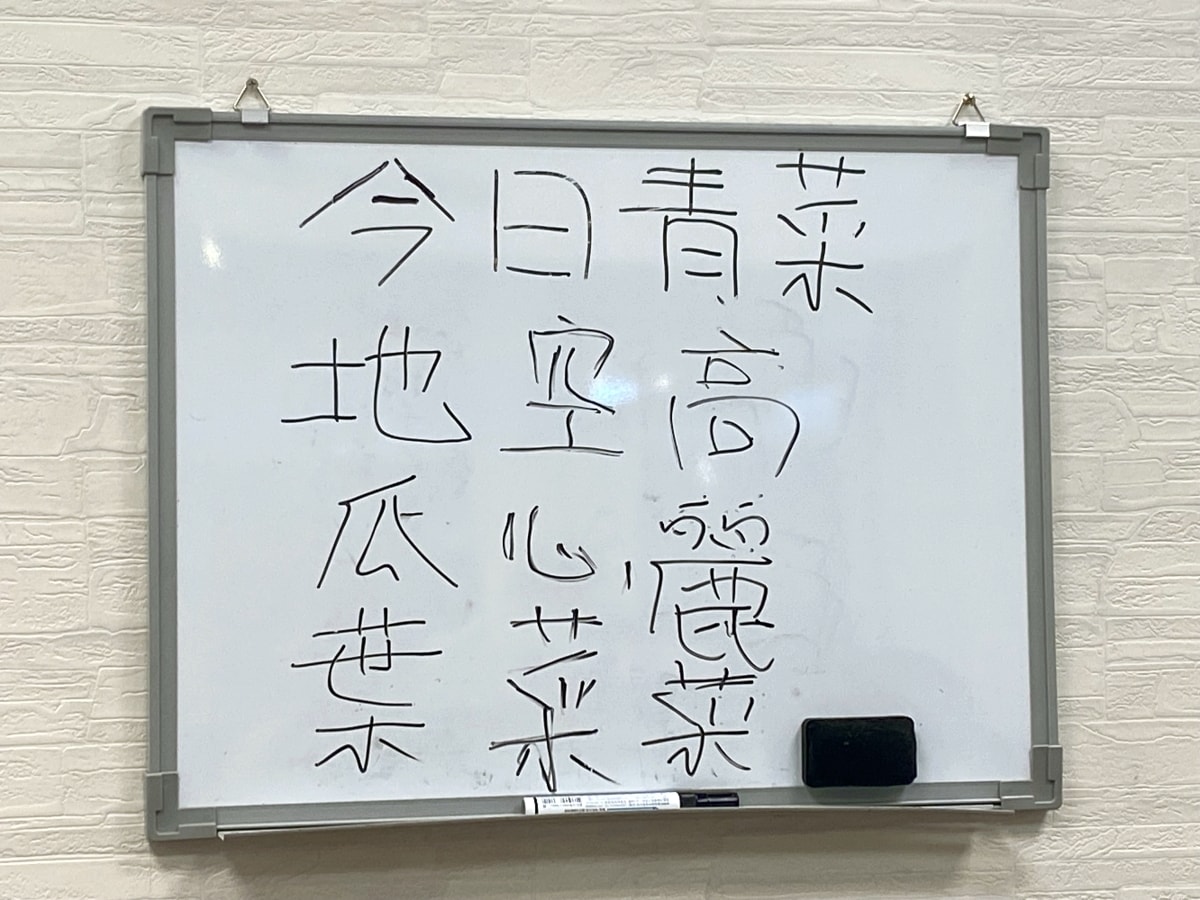 今日青菜
地瓜葉
空心菜
高麗菜